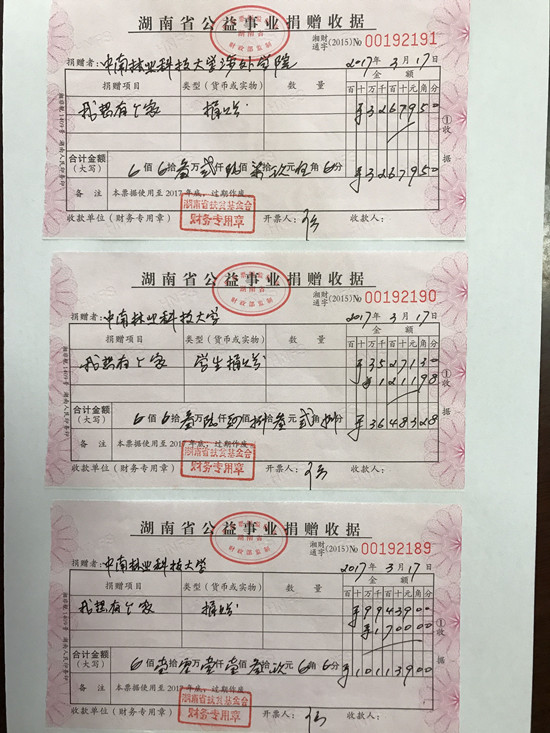 湖南省公益事业捐赠收据
湘财通字(2015)No 00192191
捐赠者：中南林业科技大学涉外学院 2017年3月17日
捐赠项目 类型（货币或实物） 数量 金额
百十万千百十元角分
我想有个家 捐款 ¥3267950
合计金额（大写） 佰 拾叁万贰仟陆佰柒拾玖元伍角 分 ¥3267950
备注 本票据使用至2017年底，过期作废
收款单位（财务专用章） 开票人： 收款人：
湖南省扶贫基金会
财务专用章
①收据
湖南省
财政部监制
湖南省公益事业捐赠收据
湘财通字(2015)No 00192190
捐赠者：中南林业科技大学 2017年3月17日
捐赠项目 类型（货币或实物） 数量 金额
百十万千百十元角分
我想有个家 学生捐款 ¥3527130
¥121198
合计金额（大写） 佰 拾叁万陆仟肆佰捌拾叁元贰角捌分 ¥3648328
备注 本票据使用至2017年底，过期作废
收款单位（财务专用章） 开票人： 收款人：
湖南省扶贫基金会
财务专用章
①收据
湖南省
财政部监制
湖南省公益事业捐赠收据
湘财通字(2015)No 00192189
捐赠者：中南林业科技大学 2017年3月17日
捐赠项目 类型（货币或实物） 数量 金额
百十万千百十元角分
我想有个家 捐款 ¥9943900
¥170000
合计金额（大写） 佰壹拾零万壹仟壹佰叁拾玖元 角 分 ¥10113900
备注 本票据使用至2017年底，过期作废
收款单位（财务专用章） 开票人： 收款人：
湖南省扶贫基金会
财务专用章
①收据
湖南省
财政部监制